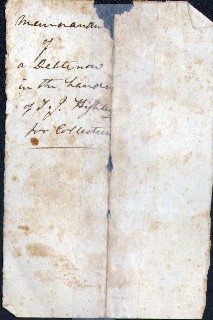 Memorandum
of
a Debt now
in the hands
of T. J.
for Collection